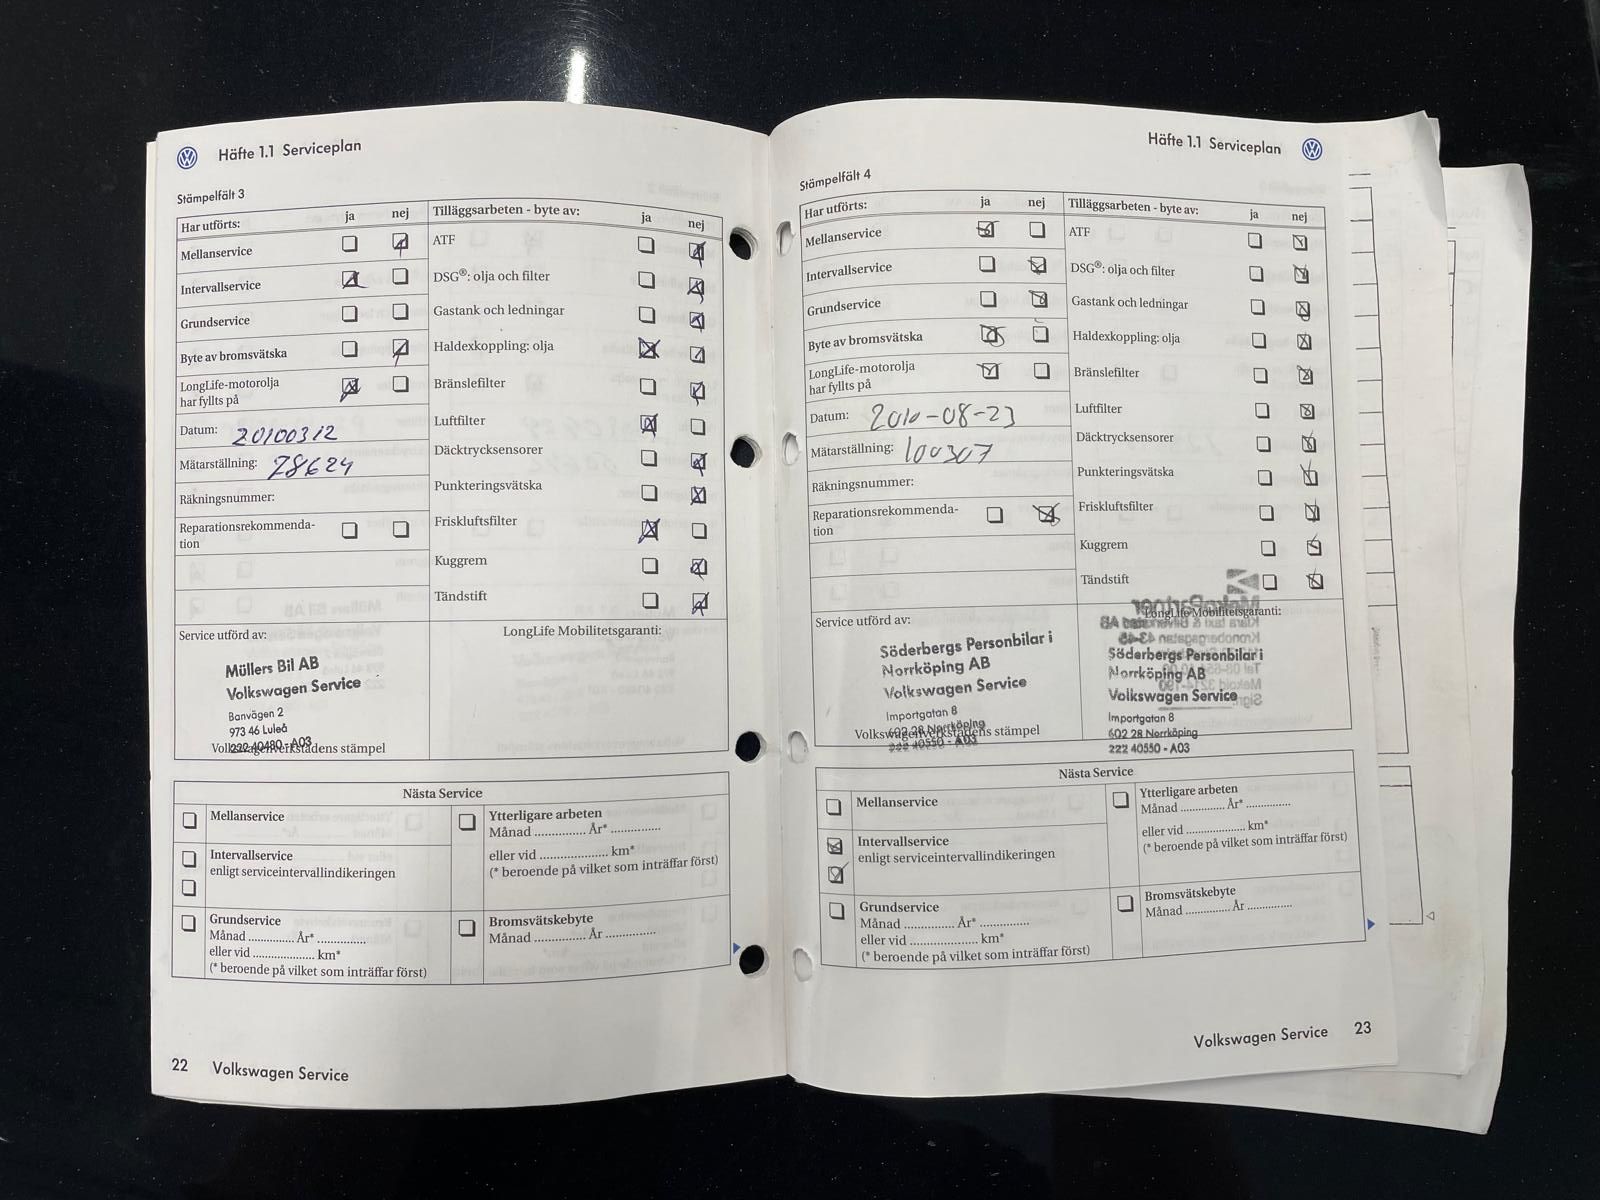 Häfte 1.1 Serviceplan
Stämpelfält 3
Har utförts: ja nej
Mellanservice
Intervallservice
Grundservice
Byte av bromsvätska
LongLife-motorolja
har fyllts på
Datum: 20100312
Mätarställning: 78624
Räkningsnummer:
Reparationsrekommenda-
tion
Tilläggsarbeten - byte av: ja nej
ATF
DSG®: olja och filter
Gastank och ledningar
Haldexkoppling: olja
Bränslefilter
Luftfilter
Däcktrycksensorer
Punkteringsvätska
Friskluftsfilter
Kuggrem
Tändstift
Service utförd av:
Müllers Bil AB
Volkswagen Service
Banvägen 2
973 46 Luleå
222 40480 - A03
Volkswagenverkstadens stämpel
LongLife Mobilitetsgaranti:
Nästa Service
Mellanservice
Intervallservice
enligt serviceintervallindikeringen
Grundservice
Månad .............. År* ..............
eller vid .................... km*
(* beroende på vilket som inträffar först)
Ytterligare arbeten
Månad .............. År* ..............
eller vid .................... km*
(* beroende på vilket som inträffar först)
Bromsvätskebyte
Månad .............. År ..............
22 Volkswagen Service
Häfte 1.1 Serviceplan
Stämpelfält 4
Har utförts: ja nej
Mellanservice
Intervallservice
Grundservice
Byte av bromsvätska
LongLife-motorolja
har fyllts på
Datum: 2010-08-23
Mätarställning: 100307
Räkningsnummer:
Reparationsrekommenda-
tion
Tilläggsarbeten - byte av: ja nej
ATF
DSG®: olja och filter
Gastank och ledningar
Haldexkoppling: olja
Bränslefilter
Luftfilter
Däcktrycksensorer
Punkteringsvätska
Friskluftsfilter
Kuggrem
Tändstift
Service utförd av:
Söderbergs Personbilar i
Norrköping AB
Volkswagen Service
Importgatan 8
602 28 Norrköping
222 40550 - A03
Volkswagenverkstadens stämpel
LongLife Mobilitetsgaranti:
Söderbergs Personbilar i
Norrköping AB
Volkswagen Service
Importgatan 8
602 28 Norrköping
222 40550 - A03
Nästa Service
Mellanservice
Intervallservice
enligt serviceintervallindikeringen
Grundservice
Månad .............. År* ..............
eller vid .................... km*
(* beroende på vilket som inträffar först)
Ytterligare arbeten
Månad .............. År* ..............
eller vid .................... km*
(* beroende på vilket som inträffar först)
Bromsvätskebyte
Månad .............. År ..............
Volkswagen Service 23